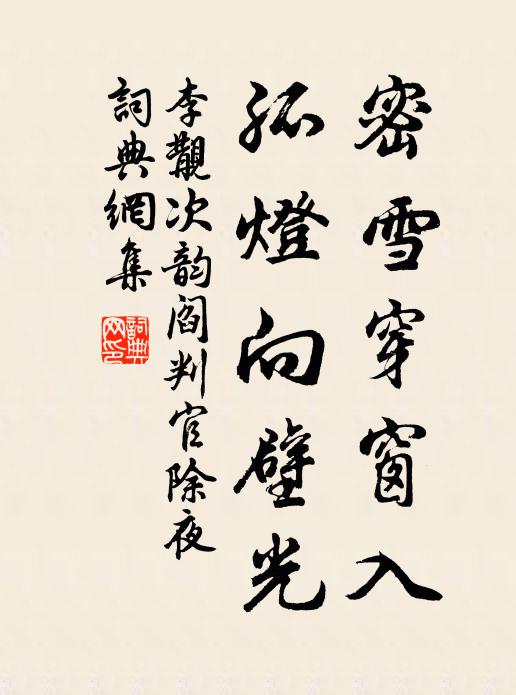 密雪穿窗入
孤燈向壁光
李覯次韵阎判官除夜
詞典網集
詞典网印